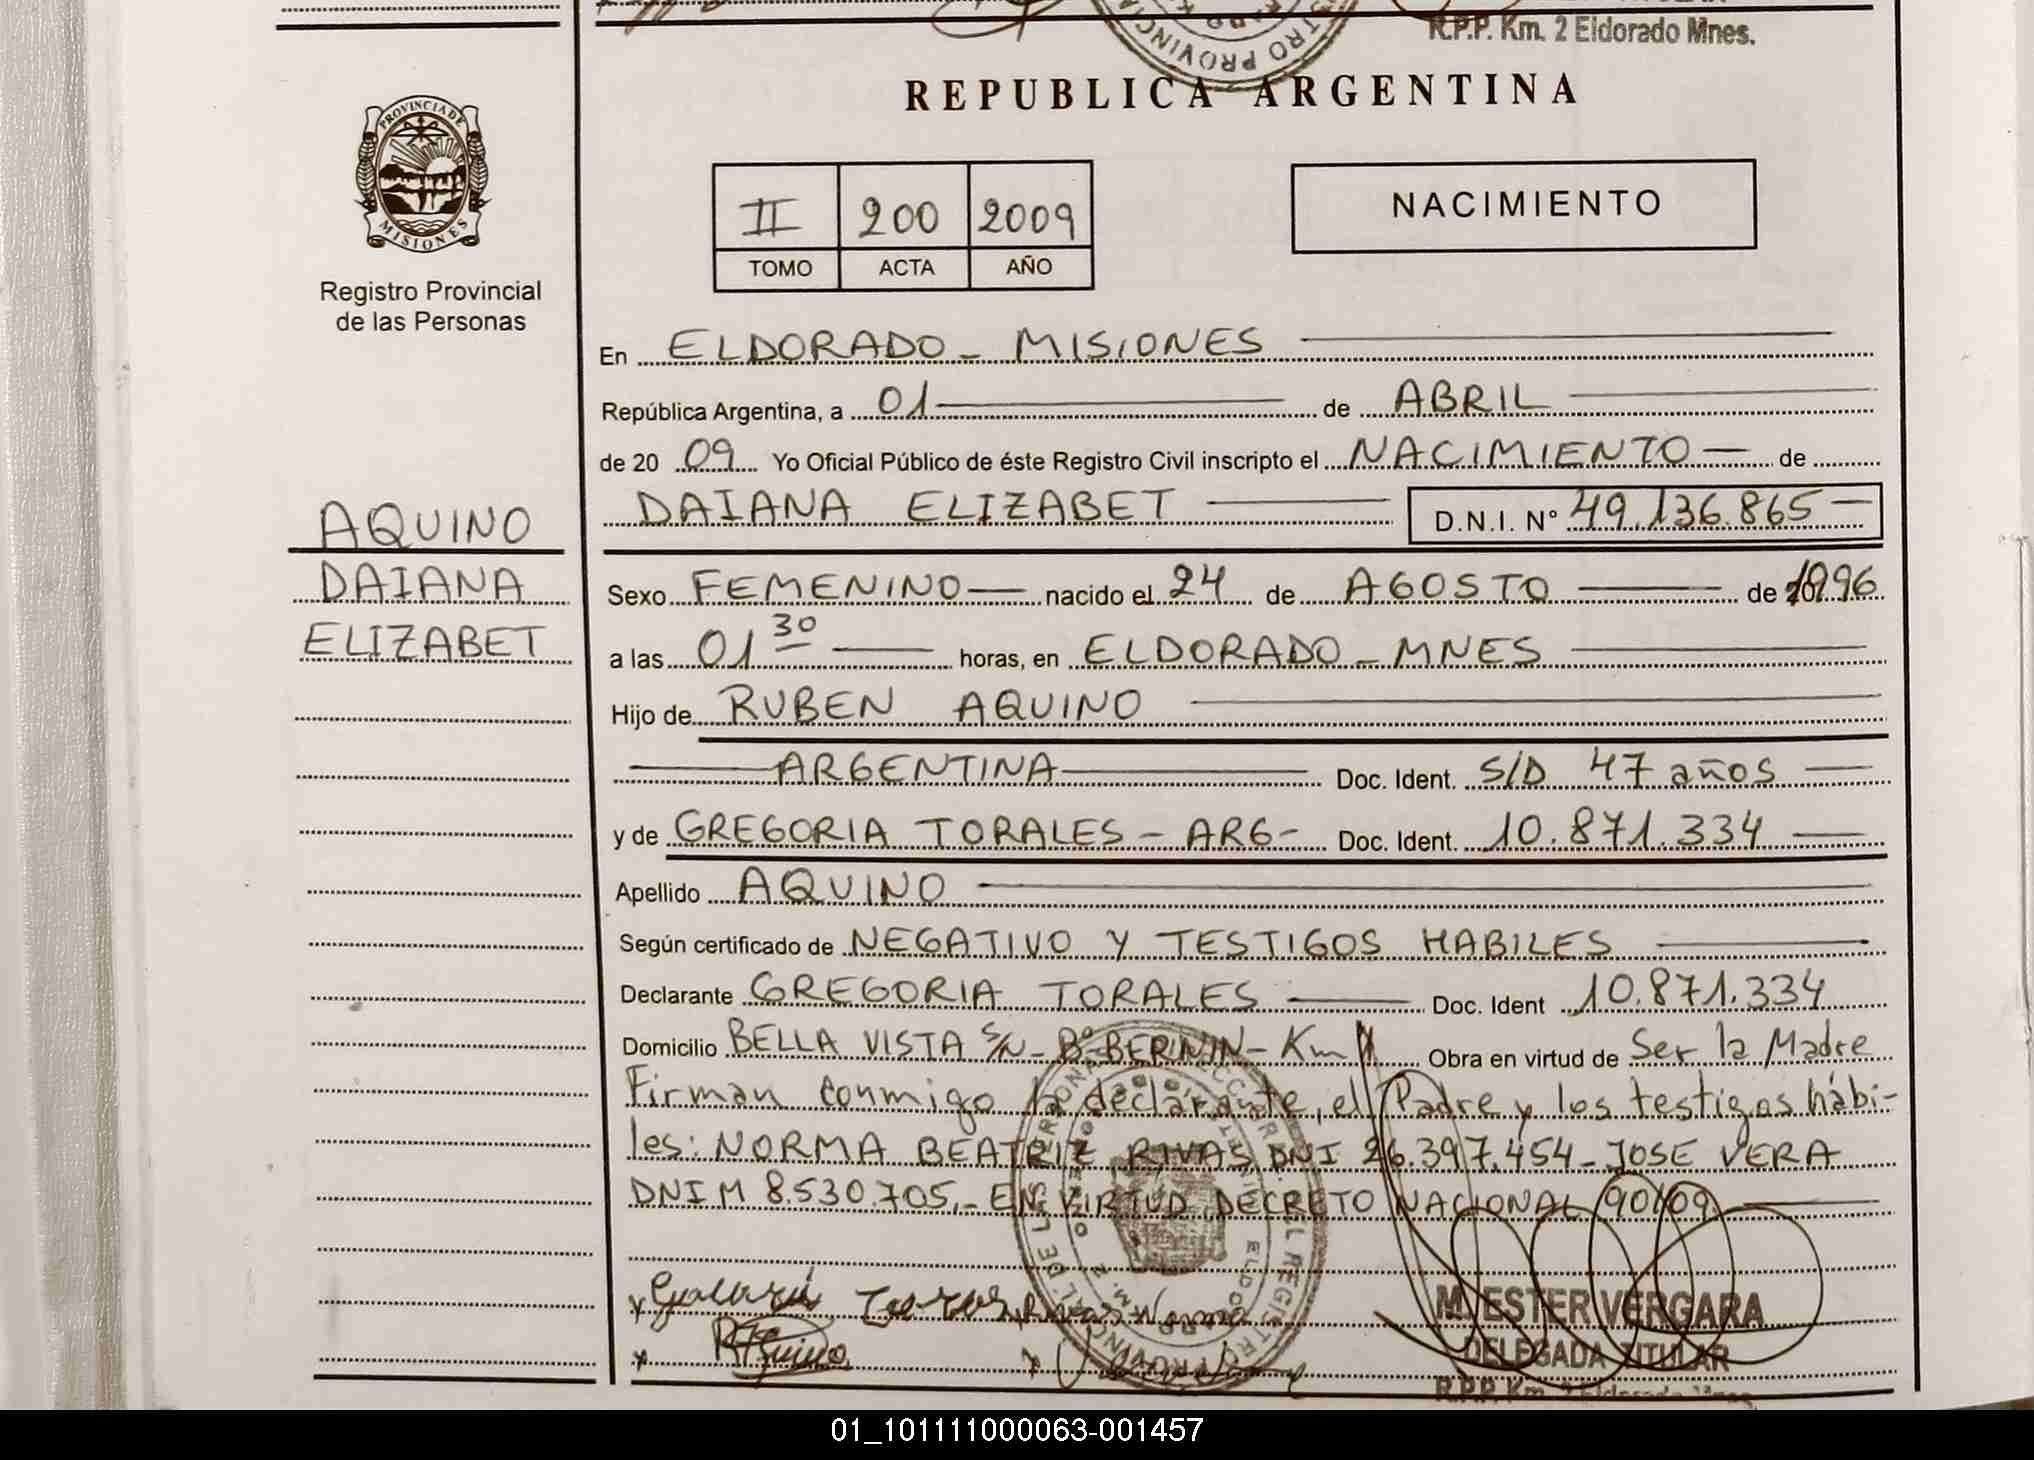 R.P.P. Km. 2 Eldorado Mnes.
REPUBLICA ARGENTINA
PROVINCIA DE
MISIONES
Registro Provincial
de las Personas
II 200 2009
TOMO ACTA AÑO
NACIMIENTO
En ELDORADO - MISIONES
República Argentina, a 01 de ABRIL
de 20 09 Yo Oficial Público de éste Registro Civil inscripto el NACIMIENTO de
AQUINO
DAIANA
ELIZABET
DAIANA ELIZABET D.N.I. N° 49.136.865
Sexo FEMENINO nacido el 24 de AGOSTO de 1996
a las 01 30 horas, en ELDORADO - MNES
Hijo de RUBEN AQUINO
ARGENTINA Doc. Ident. S/D 47 años
y de GREGORIA TORALES - ARG - Doc. Ident. 10.871.334
Apellido AQUINO
Según certificado de NEGATIVO Y TESTIGOS HABILES
Declarante GREGORIA TORALES Doc. Ident 10.871.334
Domicilio BELLA VISTA S/N - Bº BERNIN - Km Obra en virtud de Ser la Madre
Firman conmigo la declarante, el Padre y los testigos hábi-
les: NORMA BEATRIZ RIVAS DNI 26.397.454 - JOSE VERA
DNI M 8.530.705.- EN VIRTUD DECRETO NACIONAL 90/09
Rivas Norma
M. ESTER VERGARA
DELEGADA TITULAR
R.P.P. Km. 2 Eldorado Mnes.
01_101111000063-001457